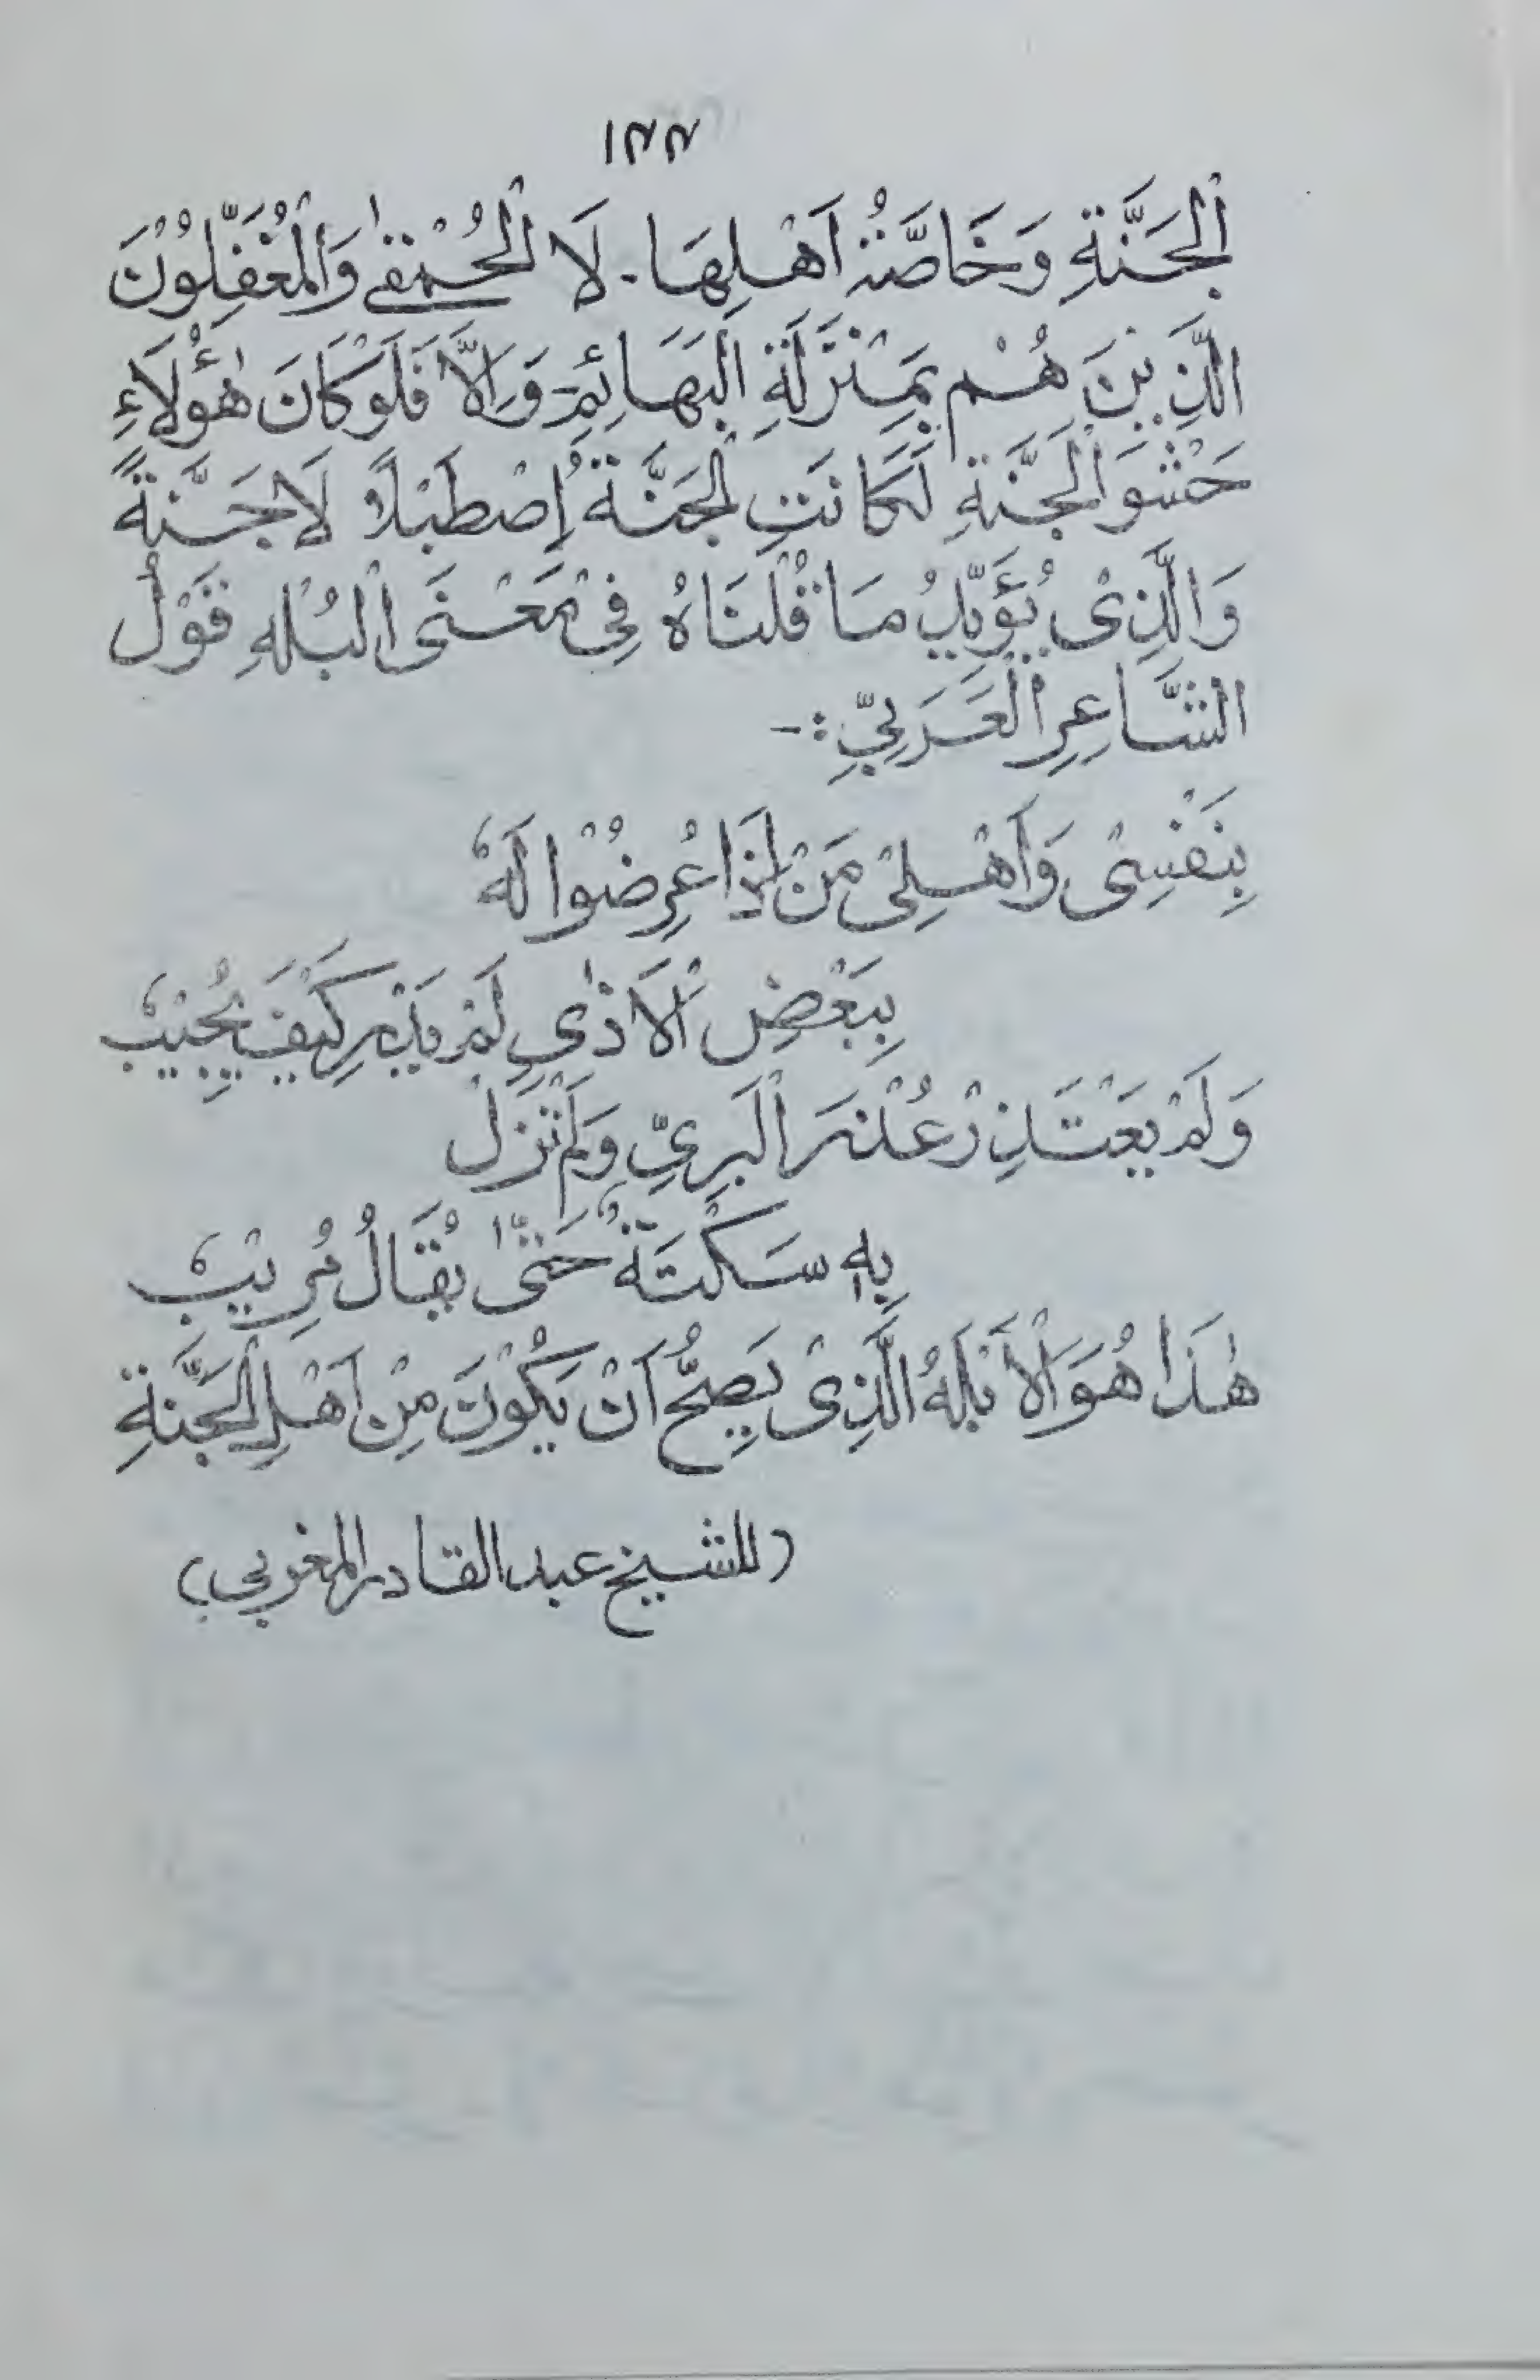 ١٣٣
اَلْجَنَّةِ وَخَاصَّةُ اَهْلِهَا. لَا الْحُمْقٰى وَالْمُغَفَّلُوْنَ
الَّذِيْنَ هُمْ بِمَنْزِلَةِ الْبَهَائِمِ- وَاِلَّا فَلَوْكَانَ هٰؤُلَاءِ
حَشْوَ الْجَنَّةِ لَكَانَتِ الْجَنَّةُ اِصْطَبْلًا لَا جَنَّةً
وَالَّذِىْ يُؤَيِّدُ مَا قُلْنَاهُ فِىْ مَعْنَى الْبُلْهِ قَوْلُ
الشَّاعِرِ الْعَرَبِيِّ :-
بِنَفْسِىْ وَاَهْلِىْ مَنْ اِذَا عُرِضُوْا لَهٗ
بِبَعْضِ الْاَذٰى لَمْ يَدْرِ كَيْفَ يُجِيْبٗ
وَلَمْ يَعْتَذِرْ عُذْرَ الْبَرِيِّ وَلَمْ تَزَلْ
بِهٖ سَكْتَةٌ حَتّٰى يُقَالُ مُرِيْبٗ
هٰذَا هُوَ الْاَبْلَهُ الَّذِىْ يَصِحُّ اَنْ يَكُوْنَ مِنْ اَهْلِ الْجَنَّةِ
(للشيخ عبد القادر المغربي)